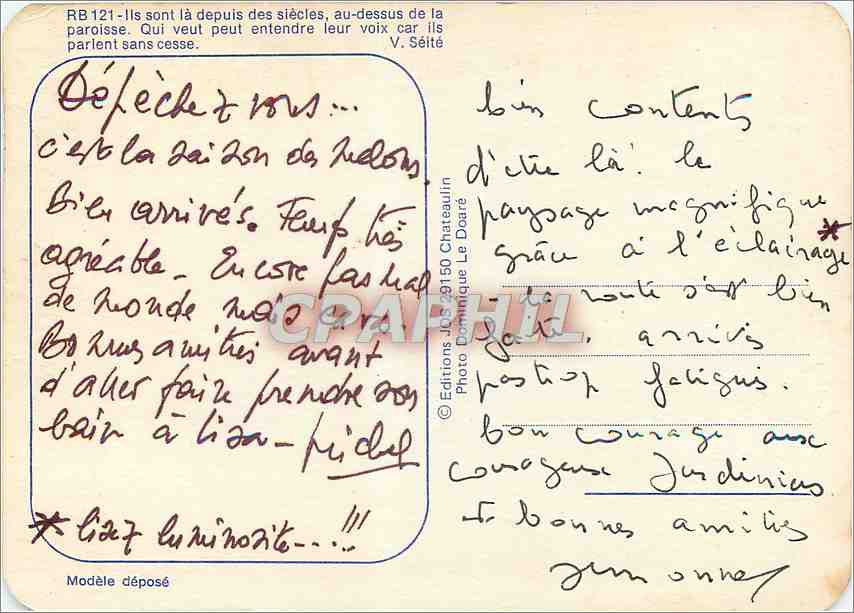 RB 121 - Ils sont là depuis des siècles, au-dessus de la
paroisse. Qui veut peut entendre leur voix car ils
parlent sans cesse. V. Séité
Dépêchez vous...
c'est la saison des melons.
Bien arrivés. Temps très
agréable - Encore pas mal
de monde mais
Bonnes amitiés avant
d'aller faire prendre son
bain à Lisa - Michel
* lisez luminosité - - - !!!
Modèle déposé
© Editions JOS 29150 Chateaulin
Photo Dominique Le Doaré
bien contents
d'être là. le
paysage magnifique
grâce à l'éclairage *
- la route s'est bien
faite. arrivés
pas trop fatigués.
bon courage aux
courageux Jardiniers
et bonnes amitiés
CPAPHIL